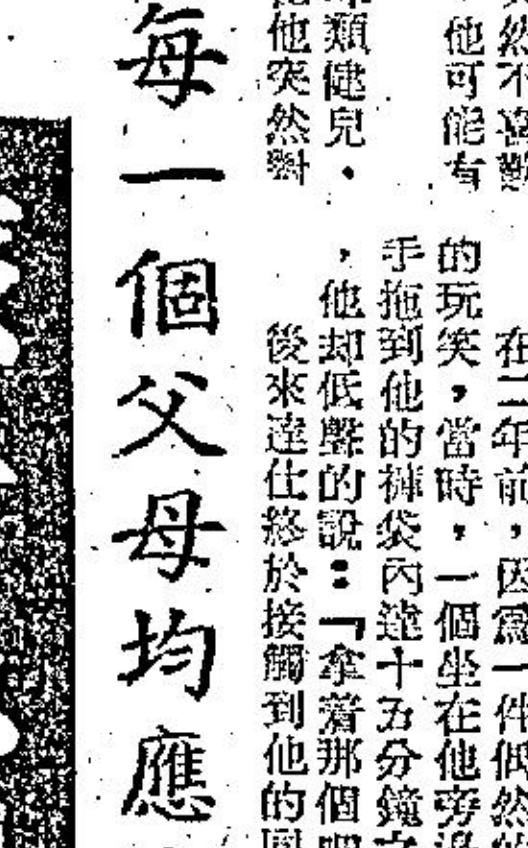 然不喜歡
他可能有
類健兒，
他突然對
在二年前，因為一件偶然的
的玩笑，當時，一個坐在他旁邊
手拖到他的褲袋內達十五分鐘之
，他却低聲的說：「拿着那個吧
後來達仕終於接觸到他的同
每一個父母均應